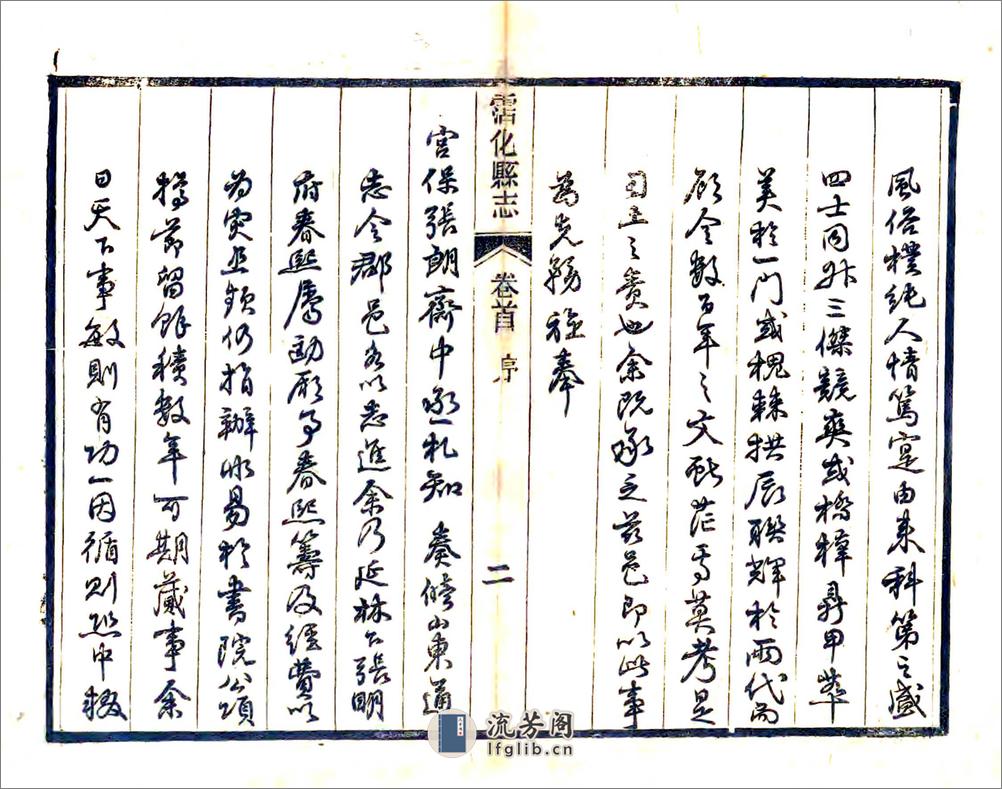 風俗樸純人情篤寔由来科第之盛
四士同升三傑競爽或橋梓鼎甲萃
美於一門或槐棘拱辰聯輝於兩代而
顧令數百年之文獻茫焉莫考是
司土之責也余既承乏茲邑即以此事
為先務雖奉
宮保張朗齋中丞札知 奏修山東通
志令郡邑各以志進余乃延林公張明
府春熙屬勷厥事春熙籌及經費以
為突巫頻仍指辦不易於書院公項
撙節留餘積數年可期蕆事余
曰天下事敏則有功一因循則恐中輟
霑化縣志
卷首 序
二
流芳阁
lfglib.cn